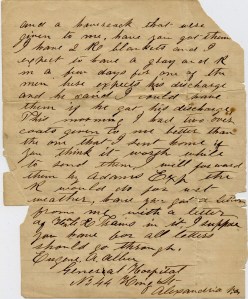 and a haversack that were
given to me, have you got them
I have 2 RO blankets and I
expect to have a gray and R
in a few days for one of the
men here expects his discharge
and he said I could have
them if he got his discharge
This morning I had two over
coats given to me better than
the one that I send home if
you think it worth while
to send them, will forward
them by Adams Exp the
R would do for wet
weather, have you got a
from me with a letter
in it I suppose
you have for all letters
should go through.
Eugene A Allen
General Hospital
No 44 King St
Alexandria Va